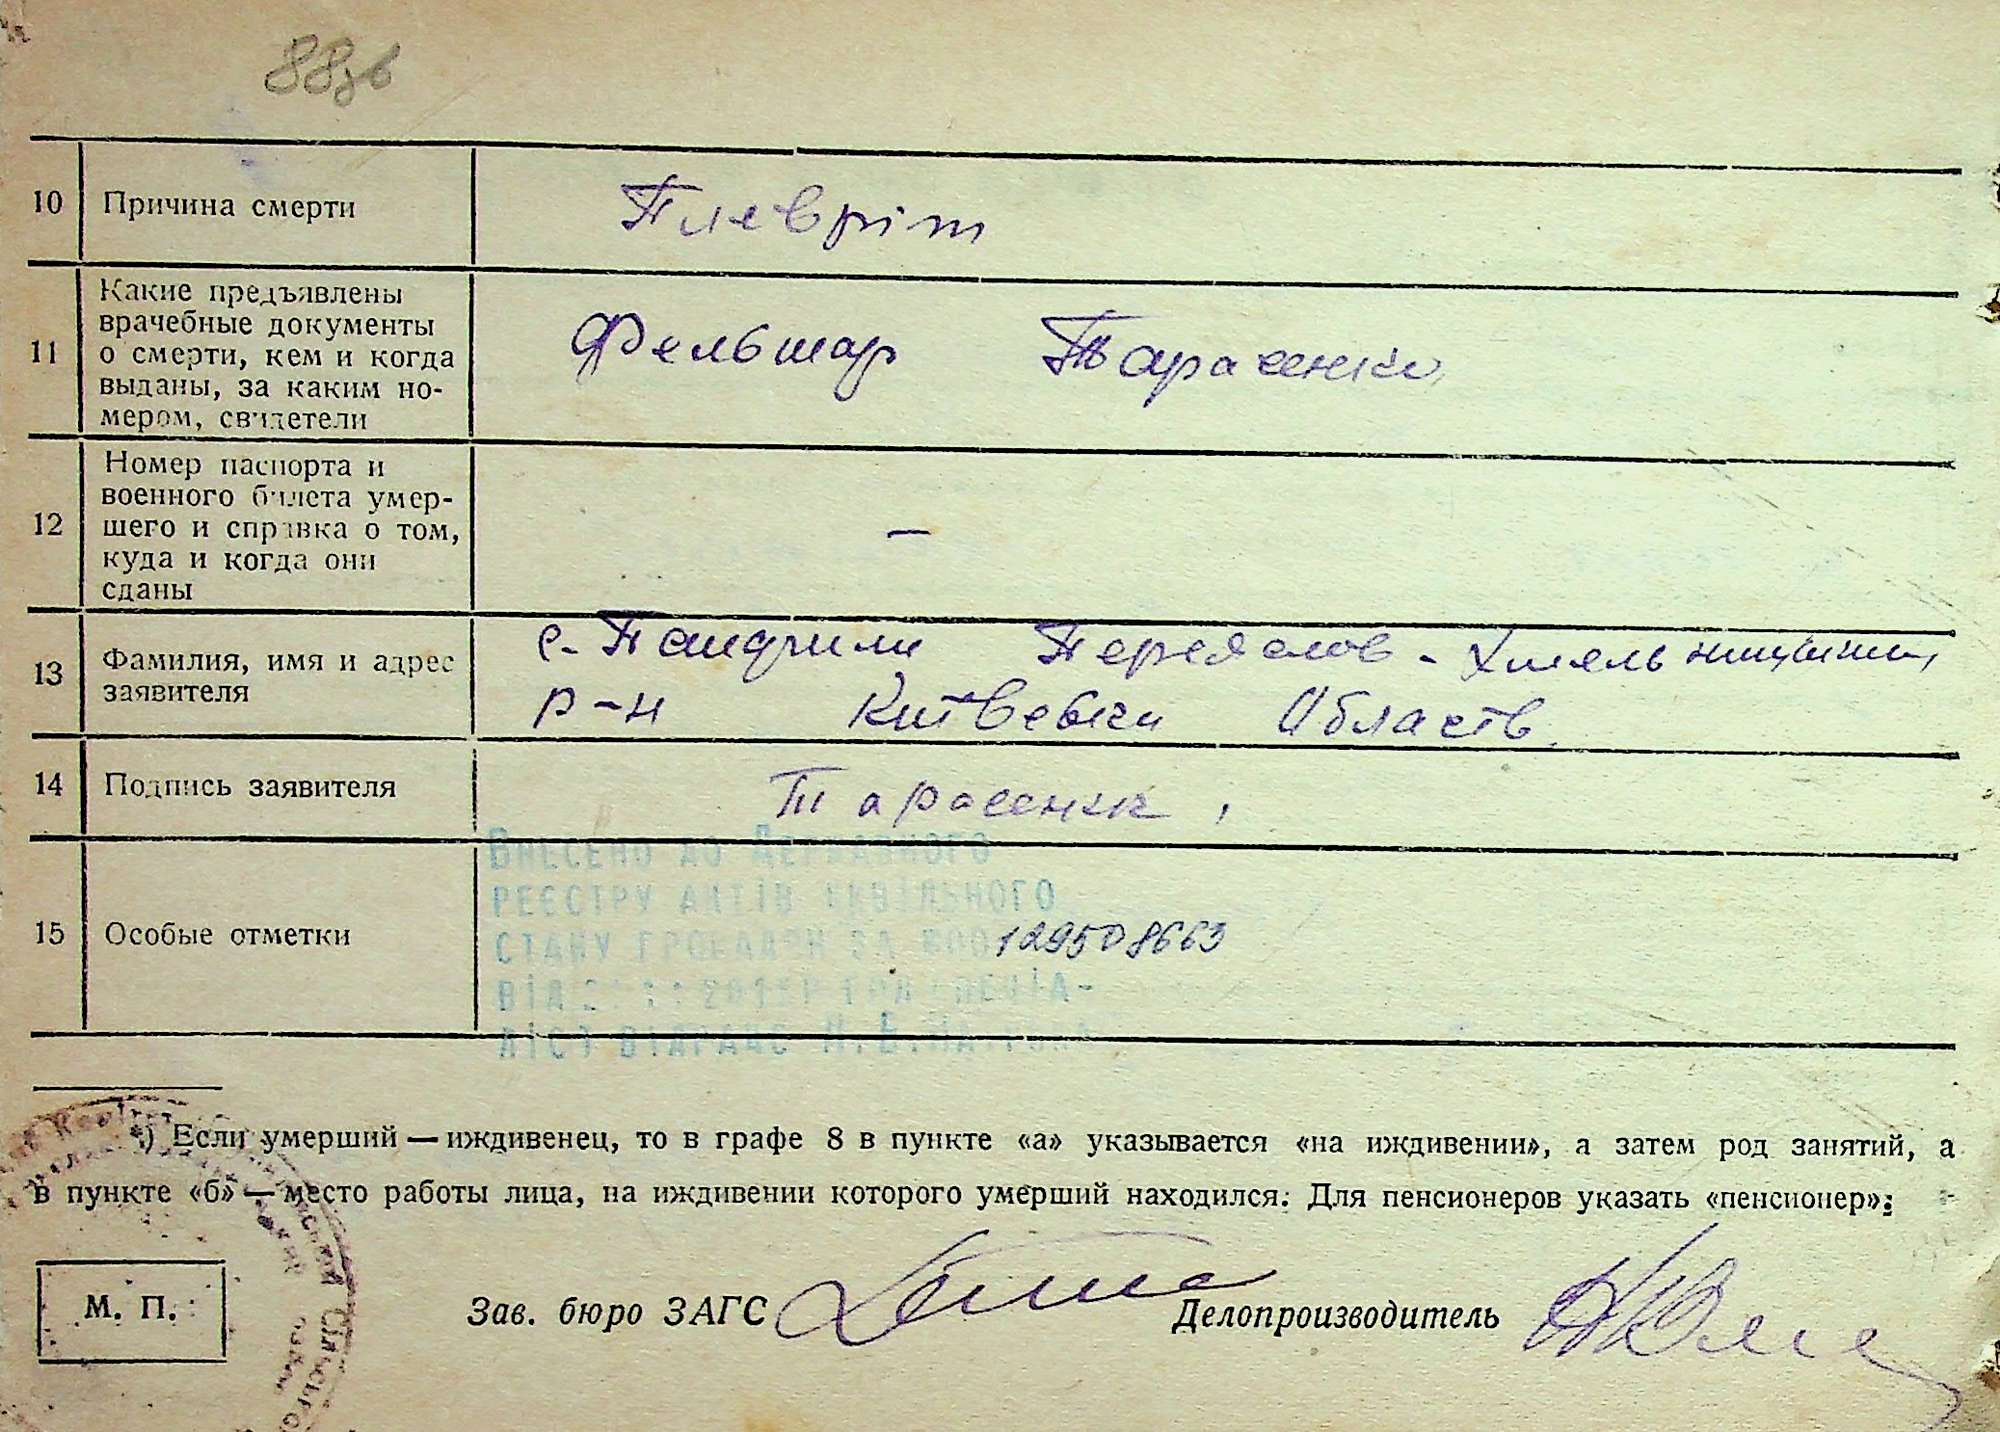 88зв
10 Причина смерти Плевріт
11 Какие предъявлены врачебные документы о смерти, кем и когда выданы, за каким номером, свидетели Фельшар Тарасенко
12 Номер паспорта и военного билета умершего и справка о том, куда и когда они сданы —
13 Фамилия, имя и адрес заявителя с. Переяслов-Хмельницький
р-н Области
14 Подпись заявителя Тарасенк
15 Особые отметки 129508663
Внесено до Державного
реєстру актів цивільного
стану громадян за
від
ліст відрацс
*) Если умерший — иждивенец, то в графе 8 в пункте «а» указывается «на иждивении», а затем род занятий, а
в пункте «б» — место работы лица, на иждивении которого умерший находился. Для пенсионеров указать «пенсионер».
М. П.
Зав. бюро ЗАГС
Делопроизводитель